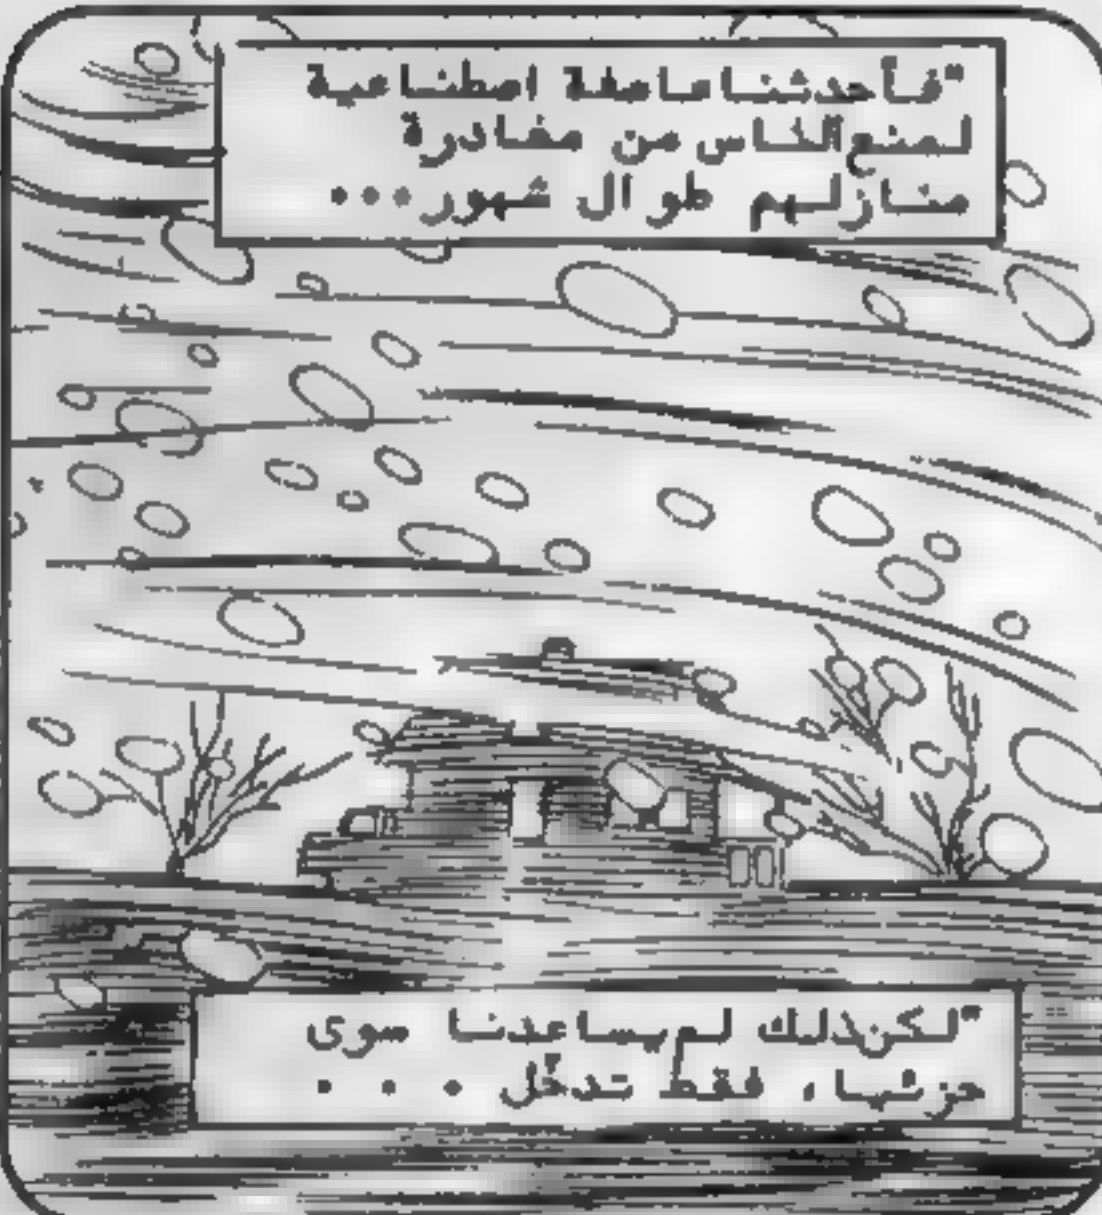 "فأحدثنا عاصفة اصطناعية
لمنع الناس من مغادرة
منازلهم طوال شهور...
"لكن ذلك لم يساعدنا سوى
جزئيا، فقط تدخّل ...